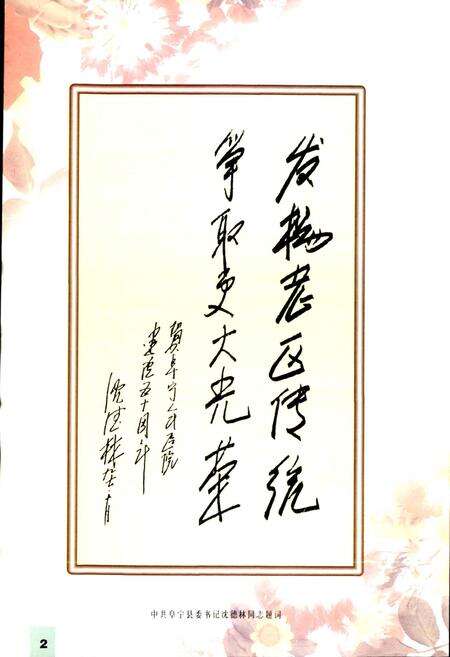 发扬老区传统
争取更大光荣
贺阜宁人民医院
建院五十周年
沈德林
中共阜宁县委书记沈德林同志题词
2